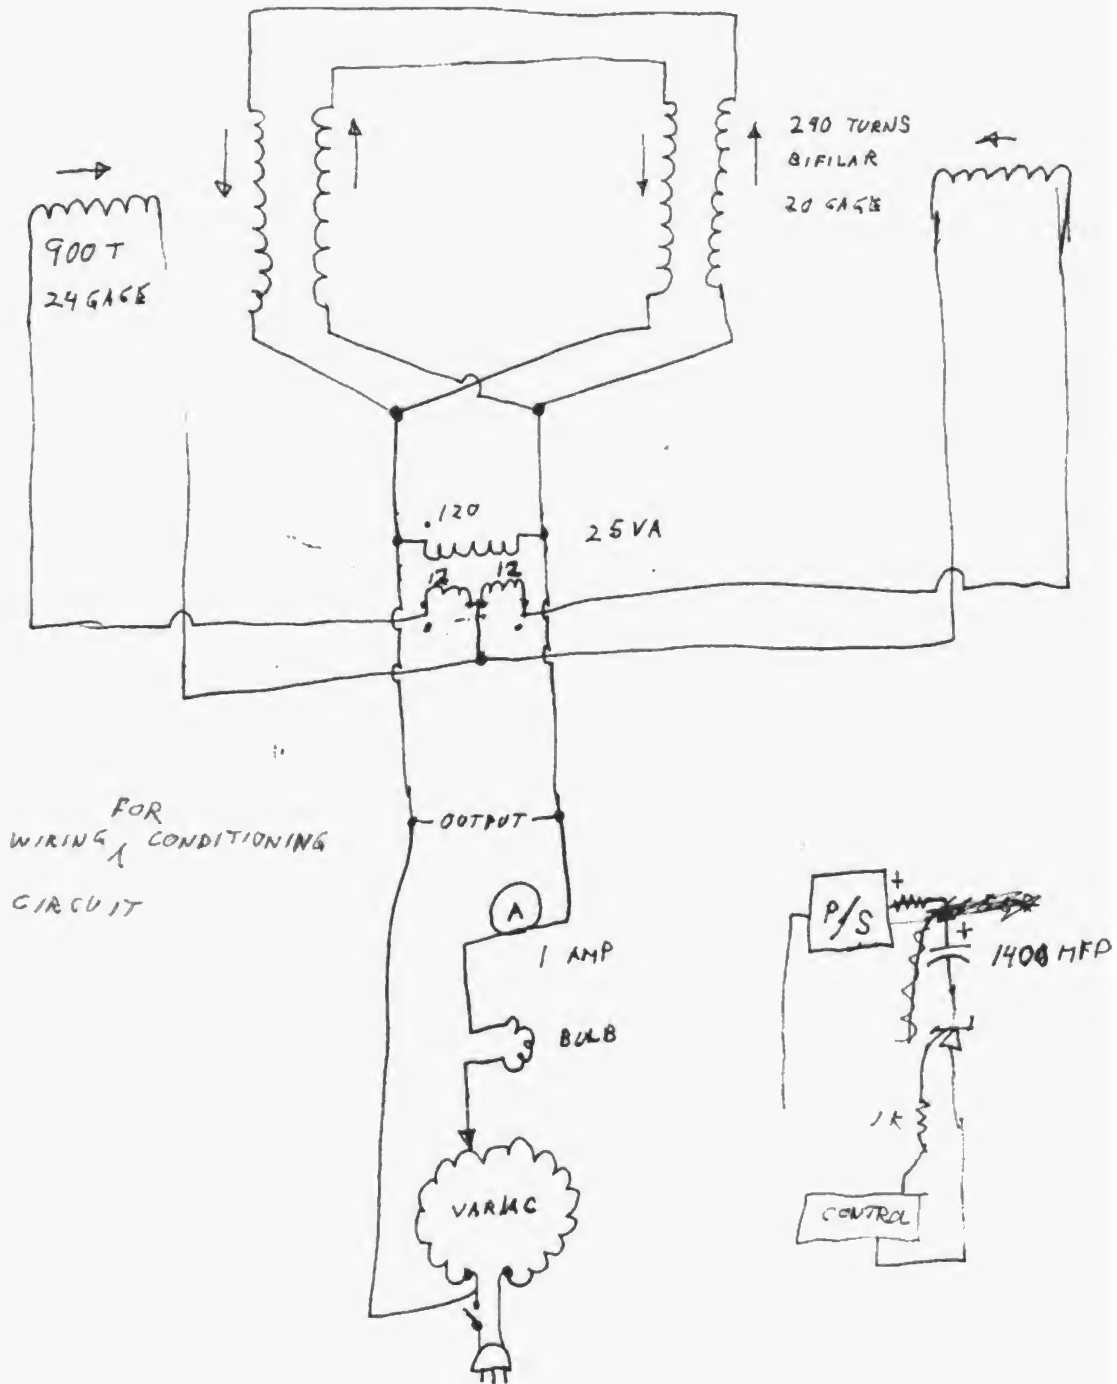 290 TURNS
BIFILAR
20 GAGE
900 T
24 GAGE
.120
25VA
12
12
OUTPUT
FOR
WIRING ^ CONDITIONING
CIRCUIT
A
1 AMP
BULB
VARIAC
P/S
+
+
1400 MFD
1K
CONTROL